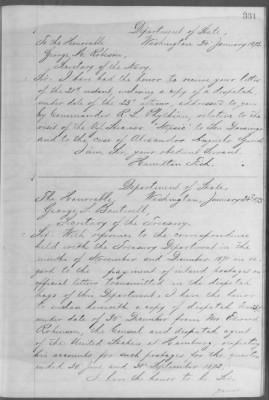 331
Department of State,
To the Honorable Washington 24 January 1873.
George M. Robeson,
Secretary of the Navy.
Sir: I have had the honor to receive your letter
of the 21st instant, enclosing a copy of a dispatch
under date of the 23d ultimo, addressed to you
by Commander R. L. Phythian, relative to the
visit of the U.S. Steamer "Nipsic" to San Domingo
and to the case of
I am, Sir, your obedient servant
Hamilton Fish.
Department of State
The Honorable, Washington, January 24th 1873
George S. Boutwell,
Secretary of the Treasury.
Sir: With reference to the correspondence
held with the Treasury Department in the
months of November and December 1871 in re-
gard to the payment of inland postages on
official letters transmitted in the despatch
bags of this Department I have the honor
to enclose herewith a copy of despatch
under date of December from Mr. Edward
Robinson, the Consul and despatch agent
of the United States at Hamburg,
his accounts for such postages for the quarters
ended 30 June and 30 September 1872.
I have the honor to be Sir,
your